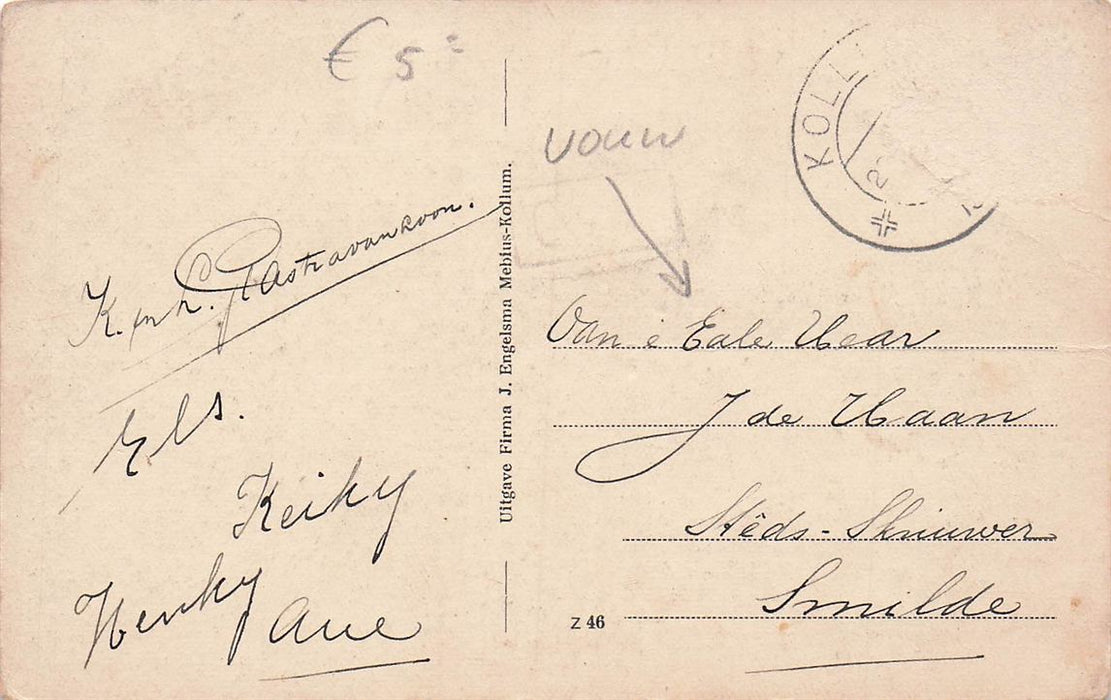 € 5 =
vouw
KOLL
2
K. en h. Gastravankoon.
Els.
Keiky
Henky
Aue
Uitgave Firma J. Engelsma Mebius-Kollum.
Oan e Eale Hear
J de Haan
Stêds-Skriuwer
Smilde
Z 46